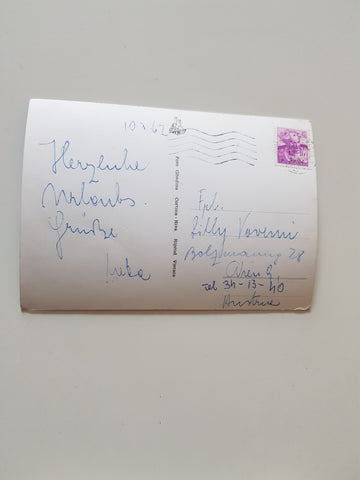 10 7 62
Herzliche
Urlaubs.
Grüße
Frl.
Lilly
28
Wien 9,
Tel 34-13-40
Austria
Foto Ghedina Cortina - Riva Riprod. Vietata